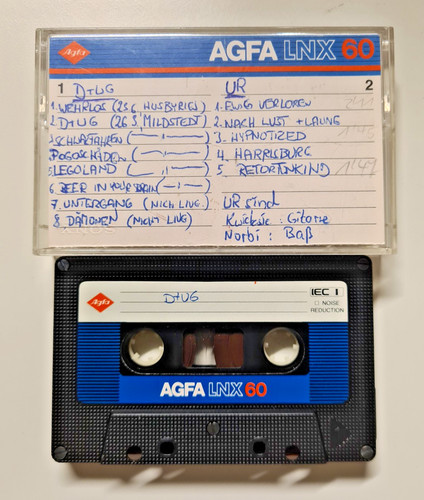 Agfa
AGFA LNX 60
1 D+UG
1. WEHRLOS (23.6. HUSBYRIES)
2. D+UG (26.3. MILDSTEDT)
3. SCHLAFFAHREN
4. POGOSCHÄDEN
5. LEGOLAND
6. BEER IN YOUR BRAIN
7. UNTERGANG (NICHT LIVE)
8. DÄMONEN (NICHT LIVE)
UR 2
1. EWIG VERLOREN
2. NACH LUST + LAUNE
3. HYPNOTIZED
4. HARRISBURG
5. RETORTENKIND
UR sind
Gitarre
Norbi : Baß
Agfa
D+UG
IEC I
NOISE
REDUCTION
AGFA LNX 60